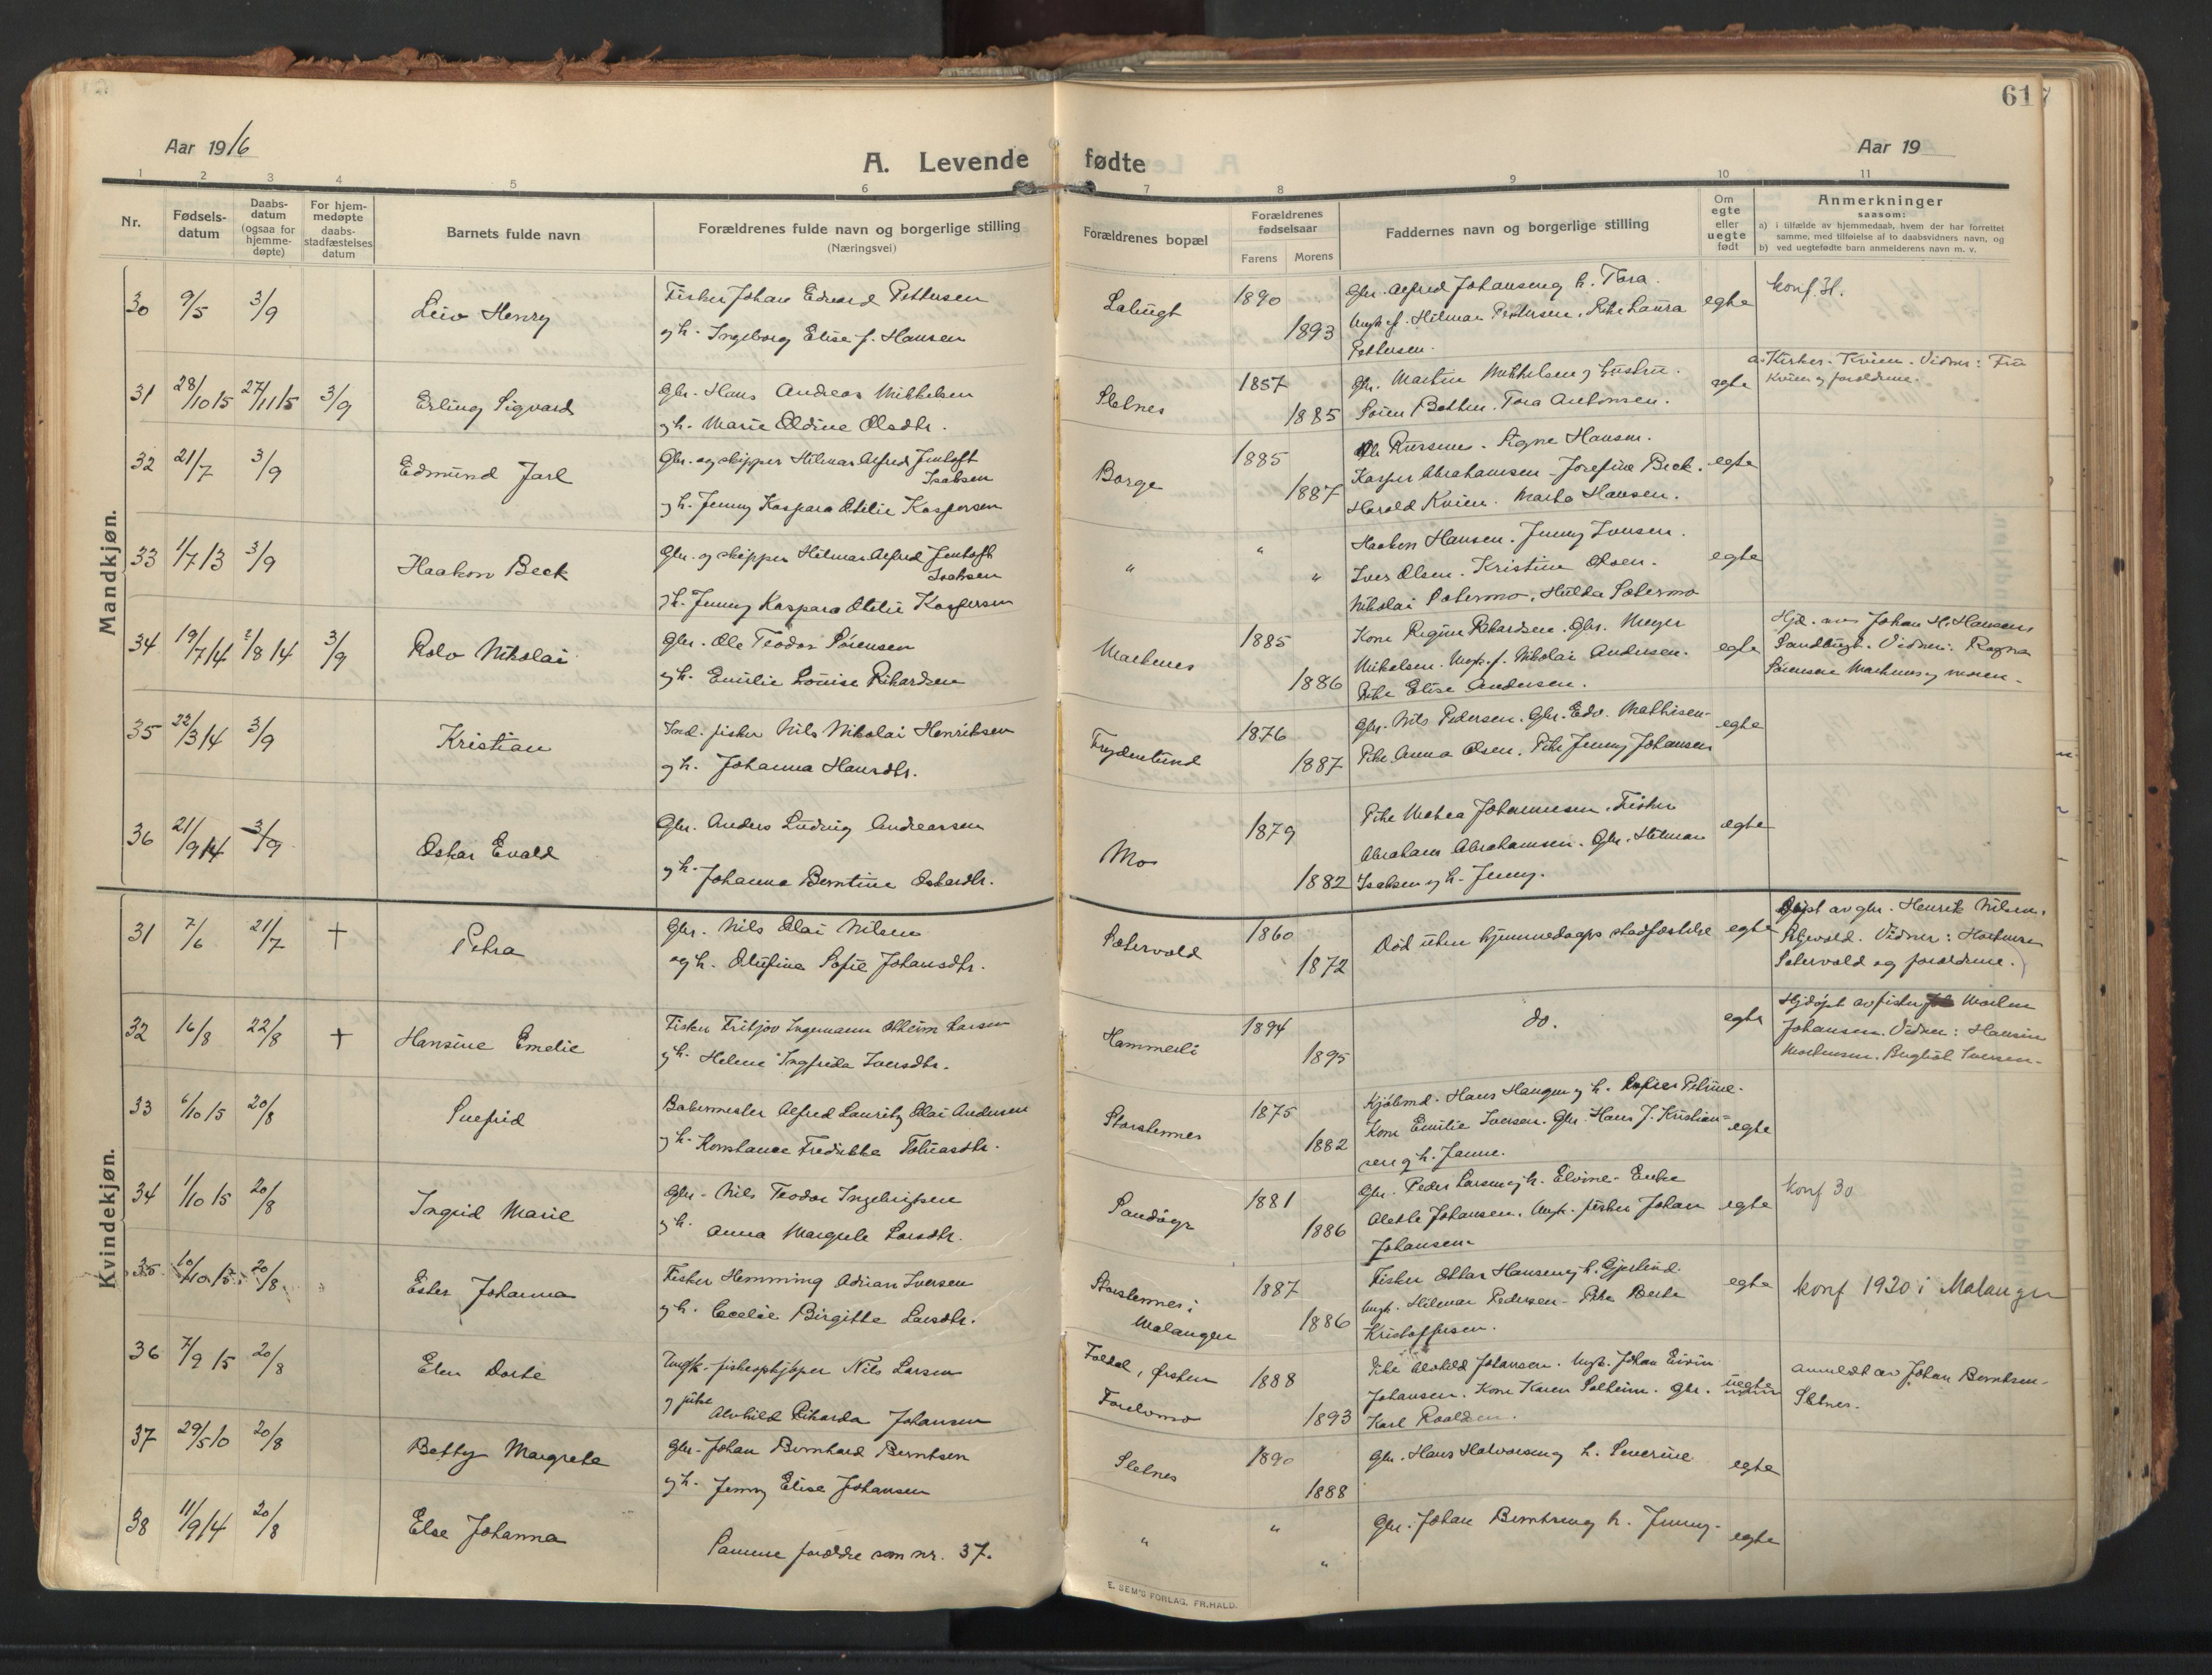 617
Aar 1916
A. Levende fødte
Aar 19
1 2 3 4 5 6 7 8 9 10 11
Nr.
Fødsels-
datum
Daabs-
datum
(ogsaa for
hjemme-
døpte)
For hjem-
medøpte
daabs-
stadfæstelses
datum
Barnets fulde navn
Forældrenes fulde navn og borgerlige stilling
(Næringsvei)
Forældrenes bopæl
Forældrenes
fødselsaar
Farens Morens
Faddernes navn og borgerlige stilling
Om
egte
eller
uegte
født
Anmerkninger
saasom:
a) i tilfælde av hjemmedaab, hvem der har forrettet
samme, med tilføielse af to daabsvidners navn, og
b) ved uegtefødte barn anmelderens navn m. v.
Mandkjøn.
30 9/5 3/9 Leiv Henry
Fisker Johan Edvard Pettersen
og h. Ingeborg Elise f. Hansen
1890
1893
Gbr. Alfred Johansen og h. Tora.
Ungk. f. Hilmar Pettersen. Pike Laura
Pettersen.
egte
konf. H.
31 28/10 15 27/11 15 3/9 Erling Sigvard
Gbr. Hans Andreas Mikkelsen
og h. Marie Oldine Olsdtr.
Sletnes
1857
1885
Gbr. Martin Mikkelsen og hustru.
Tora Antonsen.
egte
a. Kirkes. Kvien. Vidner: Fru
Kvien og forældrene.
32 21/7 3/9 Edmund Jarl
Gbr. og skipper Hilmar Alfred Jentoft
Isaksen
og h. Jenny Kaspara Otelie Kaspersen
Borge
1885
1887
Signe Hansen.
Kasper Abrahamsen - Josefine Beck.
Harald Kvien. Marta Hansen.
egte
33 1/7 13 3/9 Haakon Beck
Gbr. og skipper Hilmar Alfred Jentoft
Isaksen
og h. Jenny Kaspara Otelie Kaspersen
" " "
Haakon Hansen. Jenny Iversen.
Iver Olsen. Kristine Olsen.
Nikolai Sætermo. Hulda Sætermo
egte
34 19/7 14 2/8 14 3/9 Rolv Nikolai
Gbr. Ole Teodor Sørensen
og h. Emilie Louise Rikardsen
1885
1886
Kone Regine Rikardsen. Gbr. Meyer
Mikelsen. Ungk. f. Nikolai Andersen.
Pike Elise Andersen.
egte
Hjd. av Johan H. Hansen
Sandbugt. Vidner: Ragna
Sørensen og moren.
35 22/3 14 3/9 Kristian
Ind. fisker Nils Nikolai Henriksen
og h. Johanna Hansdtr.
Frydenlund
1876
1887
Gbr. Nils Pedersen. Gbr. Edv. Mathisen.
Pike Anna Olsen. Pike Jenny Johansen
egte
36 21/9 14 3/9 Oskar Evald
Gbr. Anders Ludvig Andreassen
og h. Johanna Berntine Oskardtr.
Mo
1879
1882
Pike Johannesen. Fisker
Abraham Abrahamsen. Gbr. Hilmar
Isaksen og h. Jenny.
egte
Kvindekjøn.
31 7/6 21/7 † Petra
Gbr. Nils Elai Nilsen
og h. Olufine Sofie Johansdtr.
Sætervold
1860
1872
Død uten hjemmedaaps stadfæstelse
egte
Døpt av gbr. Henrik Nilsen,
Vidner:
Sætervold og forældrene.
32 16/8 22/8 † Hansine Emelie
Fisker Fritjov Ingemann Larsen
og h. Helene Ingfrida Iversdtr.
Hammerli
1894
1895
do.
egte
Hjdøpt av fisker
Johansen. Vidner: Hansine
Iversen.
33 6/10 15 20/8
Bakermester Alfred Lauritz Elai Andersen
og h. Konstance Fredrikke Tobiasdtr.
Storstennes
1875
1882
Kjøbmd. Hans Haugen og h.
Kone Emilie Iversen. Gbr. Hans J. Kristian-
sen og h. Janne.
egte
34 1/10 15 20/8 Ingrid Marie
Gbr. Nils Teodor Ingebrigtsen
og h. Anna Margrete Larsdtr.
Sandøyr
1881
1886
Gbr. Peder Larsen og h. Elvine. Enke
Alette Johansen. Ungk. fisker Johan
Johansen
egte
konf 30
35 10/10 15 20/8 Ester Johanna
Fisker Hemming Adrian Iversen
og h. Cecelie Birgitte Larsdtr.
Storstennes i
Malangen
1887
1886
Fisker Ottar Hansen og h. Gjertine.
Ungk. Hilmar Pedersen - Pike Berte
Kristoffersen.
egte
konf 1920 i Malangen
36 7/9 15 20/8 Elen Dorte
Ungk. fiskeopkjøper Nils Larsen
og pike Alvhild Rikarda Johansen
1888
1893
Pike Alvhild Johansen. Ungk. Johan Eivin
Johansen. Kone Karen Solheim. Gbr.
Karl Roaldsen.
uegte
anmeldt av Johan Berntsen.
Sletnes.
37 29/5 10 20/8 Betty Margrete
Gbr. Johan Bernhard Berntsen
og h. Jenny Elise Johansen
Sletnes
1890
1888
Gbr. Hans Halvorsen og h. Severine
egte
38 11/9 14 20/8 Else Johanna
Samme forældre som nr. 37.
" " "
Gbr. Johan Berntsen og h. Jenny.
egte
E. SEM'S FORLAG. FR.HALD.